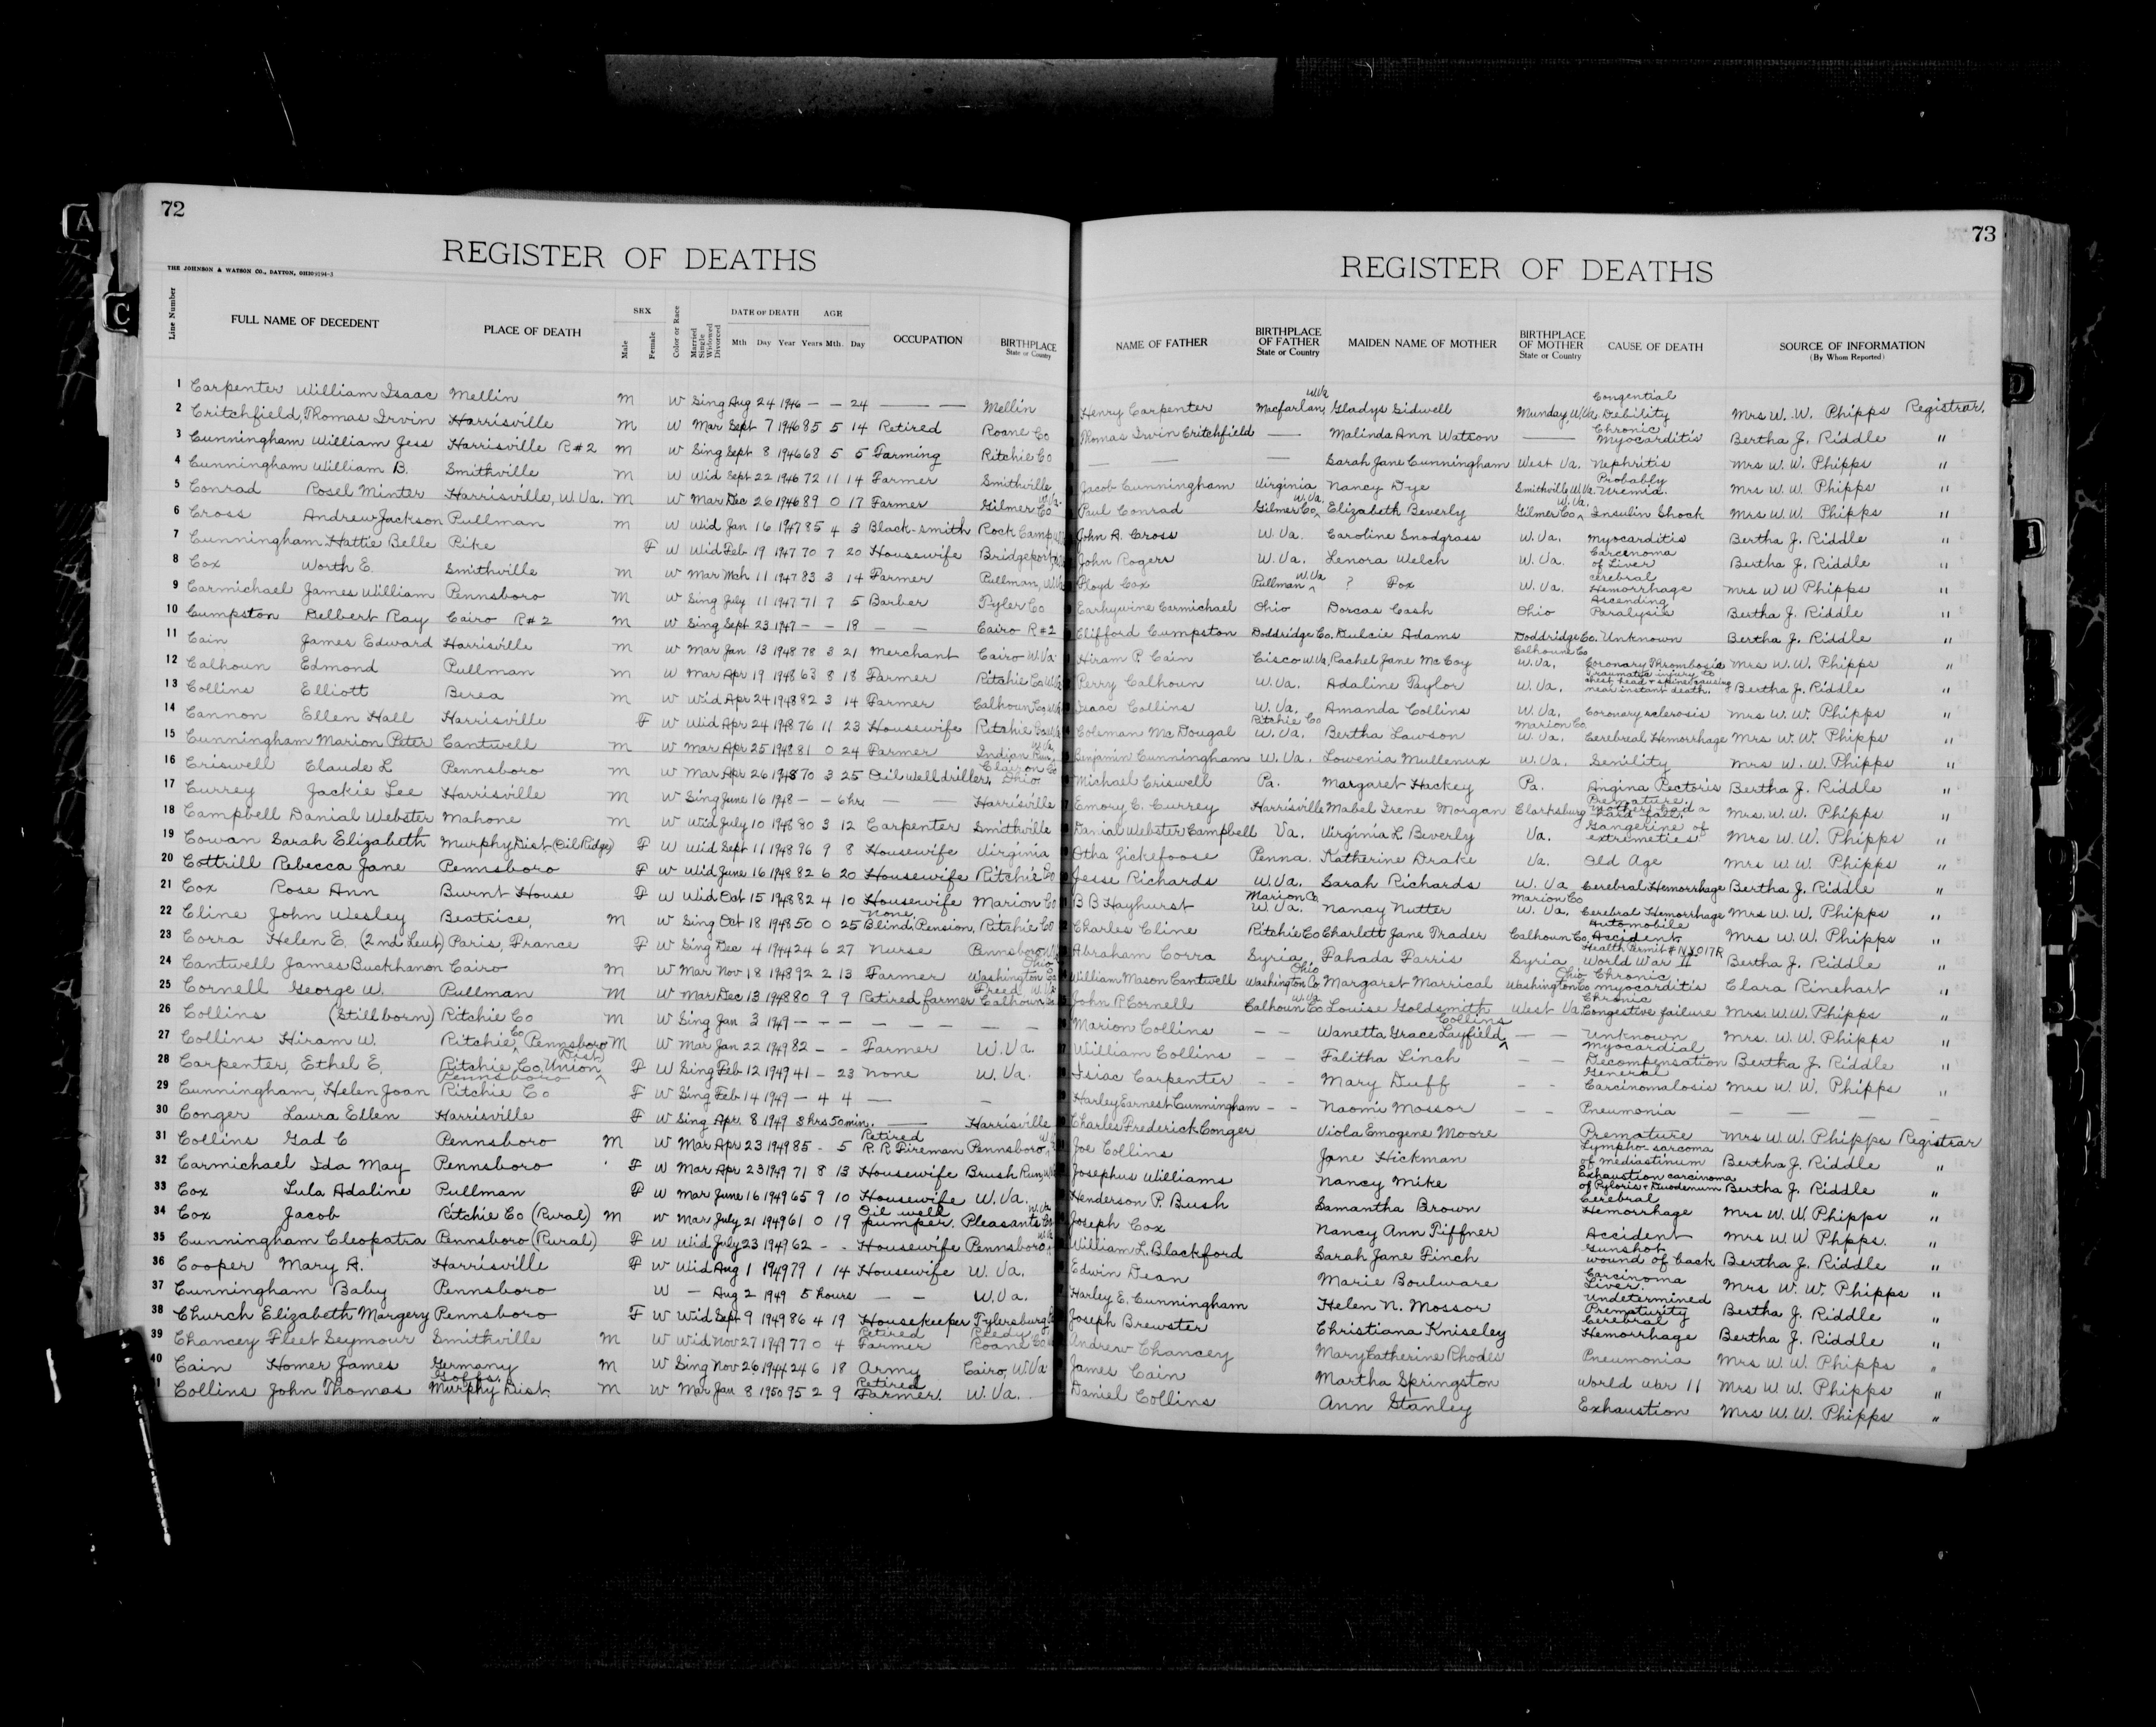 72
REGISTER OF DEATHS
THE JOHNSON & WATSON CO., DAYTON, OHIO
Line Number
FULL NAME OF DECEDENT
PLACE OF DEATH
SEX
Male
Female
Color or Race
Married Single Widowed Divorced
DATE OF DEATH
Mth Day Year
AGE
Years Mth. Day
OCCUPATION
BIRTHPLACE
State or Country
1 Carpenter William Isaac Mellin M W Sing Aug 24 1946 – – 24 — — — Mellin
2 Critchfield, Thomas Irvin Harrisville M W Mar Sept 7 1946 85 5 14 Retired Roane Co
3 Cunningham William Jess Harrisville R#2 M W Sing Sept 8 1946 68 5 5 Farming Ritchie Co
4 Cunningham William B. Smithville M W Wid Sept 22 1946 72 11 14 Farmer Smithville
5 Conrad Rosel Minter Harrisville, W.Va. M W Mar Dec 26 1946 89 0 17 Farmer Gilmer Co W.Va.
6 Cross Andrew Jackson Pullman M W Wid Jan 16 1947 85 4 3 Black-smith Rock Camp
7 Cunningham Hattie Belle Pike F W Wid Feb 19 1947 70 7 20 Housewife Bridgeport
8 Cox Worth E. Smithville M W Mar Mch 11 1947 83 3 14 Farmer Pullman, W.Va
9 Carmichael James William Pennsboro M W Sing July 11 1947 71 7 5 Barber Tyler Co
10 Cumpston Delbert Ray Cairo R#2 M W Sing Sept 23 1947 – – 18 — — Cairo R#2
11 Cain James Edward Harrisville M W Mar Jan 13 1948 78 3 21 Merchant Cairo W.Va.
12 Calhoun Edmond Pullman M W Mar Apr 19 1948 63 8 18 Farmer Ritchie Co W.Va
13 Collins Elliott Berea M W Wid Apr 24 1948 82 3 14 Farmer Calhoun Co
14 Cannon Ellen Hall Harrisville F W Wid Apr 24 1948 76 11 23 Housewife Ritchie Co
15 Cunningham Marion Peter Cantwell M W Mar Apr 25 1948 81 0 24 Farmer Indian Run W.Va.
16 Criswell Claude L Pennsboro M W Mar Apr 26 1948 70 3 25 Oil Well driller, Clarion Co Ohio
17 Currey Jackie Lee Harrisville M W Sing June 16 1948 – – 6 hrs — — Harrisville
18 Campbell Danial Webster Mahone M W Wid July 10 1948 80 3 12 Carpenter Smithville
19 Cowan Sarah Elizabeth Murphy Dist (Oil Ridge) F W Wid Sept 11 1948 96 9 8 Housewife Virginia
20 Cottrill Rebecca Jane Pennsboro F W Wid June 16 1948 82 6 20 Housewife Ritchie Co
21 Cox Rose Ann Burnt House F W Wid Oct 15 1948 82 4 10 Housewife Marion Co
22 Cline John Wesley Beatrice, M W Sing Oct 18 1948 50 0 25 None Blind Pension, Ritchie Co
23 Corra Helen E. (2nd Leut) Paris, France F W Sing Dec 4 1944 24 6 27 Nurse Pennsboro
24 Cantwell James Buckhanon Cairo M W Mar Nov 18 1948 92 2 13 Farmer Washington Co Ohio
25 Cornell George W. Pullman M W Mar Dec 13 1948 80 9 9 Retired farmer Freed W.Va Calhoun Co
26 Collins (Stillborn) Ritchie Co M W Sing Jan 3 1949 – – – — — — —
27 Collins Hiram W. Ritchie Co, Pennsboro M W Mar Jan 22 1949 82 – – Farmer W.Va.
28 Carpenter, Ethel E. Ritchie Co, Union (Dist) Pennsboro F W Sing Feb 12 1949 41 – 23 None W.Va.
29 Cunningham, Helen Joan Ritchie Co F W Sing Feb 14 1949 – 4 4 — –
30 Conger Laura Ellen Harrisville F W Sing Apr. 8 1949 3 hrs 50 min. — Harrisville
31 Collins Gad C Pennsboro M W Mar Apr 23 1949 85 - 5 Retired R.R. Fireman Pennsboro
32 Carmichael Ida May Pennsboro F W Mar Apr 23 1949 71 8 13 Housewife Brush Run
33 Cox Lula Adaline Pullman F W Mar June 16 1949 65 9 10 Housewife W.Va.
34 Cox Jacob Ritchie Co (Rural) M W Mar July 21 1949 61 0 19 Oil well pumper. Pleasants Co W.Va
35 Cunningham Cleopatra Pennsboro (Rural) F W Wid July 23 1949 62 - - Housewife Pennsboro
36 Cooper Mary A. Harrisville F W Wid Aug 1 1949 79 1 14 Housewife W. Va.
37 Cunningham Baby Pennsboro W – Aug 2 1949 5 hours — — W.Va.
38 Church Elizabeth Margery Pennsboro F W Wid Sept 9 1949 86 4 19 Housekeeper Tylersburg
39 Chancey Fleet Seymour Smithville M W Wid Nov 27 1949 77 0 4 Retired Farmer Reedy Roane Co
40 Cain Homer James Germany M W Sing Nov 26 1944 24 6 18 Army Cairo, W.Va
Collins John Thomas Goffs, Murphy Dist. M W Mar Jan 8 1950 95 2 9 Retired Farmer. W.Va.
73
REGISTER OF DEATHS
NAME OF FATHER
BIRTHPLACE OF FATHER
State or Country
MAIDEN NAME OF MOTHER
BIRTHPLACE OF MOTHER
State or Country
CAUSE OF DEATH
SOURCE OF INFORMATION
(By Whom Reported)
Henry Carpenter Macfarlan, W.Va Gladys Sidwell Munday, W.Va. Congential Debility Mrs W. W. Phipps Registrar.
Thomas Irvin Critchfield — Malinda Ann Watson — Chronic Myocarditis Bertha J. Riddle "
— — — Sarah Jane Cunningham West Va. Nephritis Mrs W. W. Phipps "
Jacob Cunningham Virginia Nancy Dye Smithville W.Va. Probably Uremia. Mrs W. W. Phipps "
Paul Conrad Gilmer Co W.Va. Elizabeth Beverly Gilmer Co W.Va. Insulin Shock Mrs W. W. Phipps "
John A. Cross W.Va. Caroline Snodgrass W.Va. Myocarditis Bertha J. Riddle "
John Rogers W.Va. Lenora Welch W.Va. Carcenoma of Liver Bertha J. Riddle "
Floyd Cox Pullman W.Va ? Fox W.Va. Cerebral Hemorrhage Mrs W W Phipps "
Earhywine Carmichael Ohio Dorcas Cash Ohio Ascending Paralysis Bertha J. Riddle "
Clifford Cumpston Doddridge Co. Dulcie Adams Doddridge Co. Unknown Bertha J. Riddle "
Hiram P. Cain Cisco W.Va. Rachel Jane McCoy Calhoun Co W.Va. Coronary Thrombosis Mrs W.W. Phipps "
Perry Calhoun W.Va. Adaline Taylor W.Va. Traumatic injury to chest, head & spine causing near instant death. Bertha J. Riddle "
Isaac Collins W.Va. Amanda Collins W.Va. Coronary sclerosis Mrs W.W. Phipps "
Coleman McDougal Ritchie Co W.Va. Bertha Lawson Marion Co W.Va. Cerebreal Hemorrhage Mrs W.W. Phipps "
Benjamin Cunningham W.Va. Lowenia Mullenux W.Va. Senility Mrs W. W. Phipps "
Michael Criswell Pa. Margaret Hackey Pa. Angina Pectoris Bertha J. Riddle "
Emory E. Currey Harrisville Mabel Irene Morgan Clarksburg Premature: Mother had a hard fall. Mrs. W.W. Phipps "
Danial Webster Campbell Va. Virginia L. Beverly Va. Gangerine of extremeties Mrs W.W. Phipps "
Otha Zickefoose Penna. Katherine Drake Va. Old Age Mrs W.W. Phipps "
Jesse Richards W.Va. Sarah Richards W. Va Cerebral Hemorrhage Bertha J. Riddle "
B B Hayhurst Marion Co W.Va. Nancy Nutter Marion Co W. Va. Cerebral Hemorrhage Mrs W.W. Phipps "
Charles Cline Ritchie Co Charlett Jane Trader Calhoun Co Automobile Accident Mrs W.W. Phipps "
Abraham Corra Syria Fahada Farris Syria World War II Bertha J. Riddle "
William Mason Cantwell Washington Co Ohio Margaret Marrical Washington Co Ohio Chronic Myocarditis Clara Rinehart "
John P. Cornell Calhoun Co W.Va. Louise Goldsmith West Va. Chronic Congestive failure Mrs. W.W. Phipps "
Marion Collins – – Wanetta Grace Layfield Collins – – Unknown Mrs. W.W. Phipps "
William Collins – – Talitha Linch – – Myocardial Decompensation Bertha J. Riddle "
Isiac Carpenter – – Mary Duff – – General Carcinomalosis Mrs W. W. Phipps "
Harley Earnest Cunningham – – Naomi Mossor – – Pneumonia — — — —
Charles Frederick Conger Viola Emogene Moore Premature Mrs W. W. Phipps Registrar
Joe Collins Jane Hickman Lympho-sarcoma of mediastinum Bertha J. Riddle "
Josephus Williams Nancy Mike Exhaustion carcinoma of Pyloris & Duodenum Bertha J. Riddle "
Henderson P. Bush Samantha Brown Cerebral Hemorrhage Mrs W. W. Phipps "
Joseph Cox Nancy Ann Piffner Accident Mrs W. W Phpps. "
William L. Blackford Sarah Jane Finch Gunshot wound of back Bertha J. Riddle "
Edwin Dean Marie Boulware Carcinoma Liver. Mrs W. W. Phipps "
Harley E. Cunningham Helen N. Mossor Undetermined Prematurity Bertha J. Riddle "
Joseph Brewster Christiana Kniseley Cerebral Hemorrhage Bertha J. Riddle "
Andrew Chancey Mary Catherine Rhodes Pneumonia Mrs W. W. Phipps "
James Cain Martha Springston World War 11 Mrs W. W. Phipps "
Daniel Collins Ann Stanley Exhaustion Mrs W. W. Phipps "
A
C
D